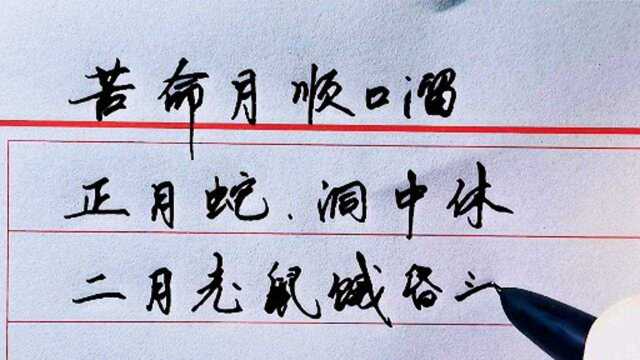 苦命月顺口溜
正月蛇、洞中休
二月老鼠饿昏